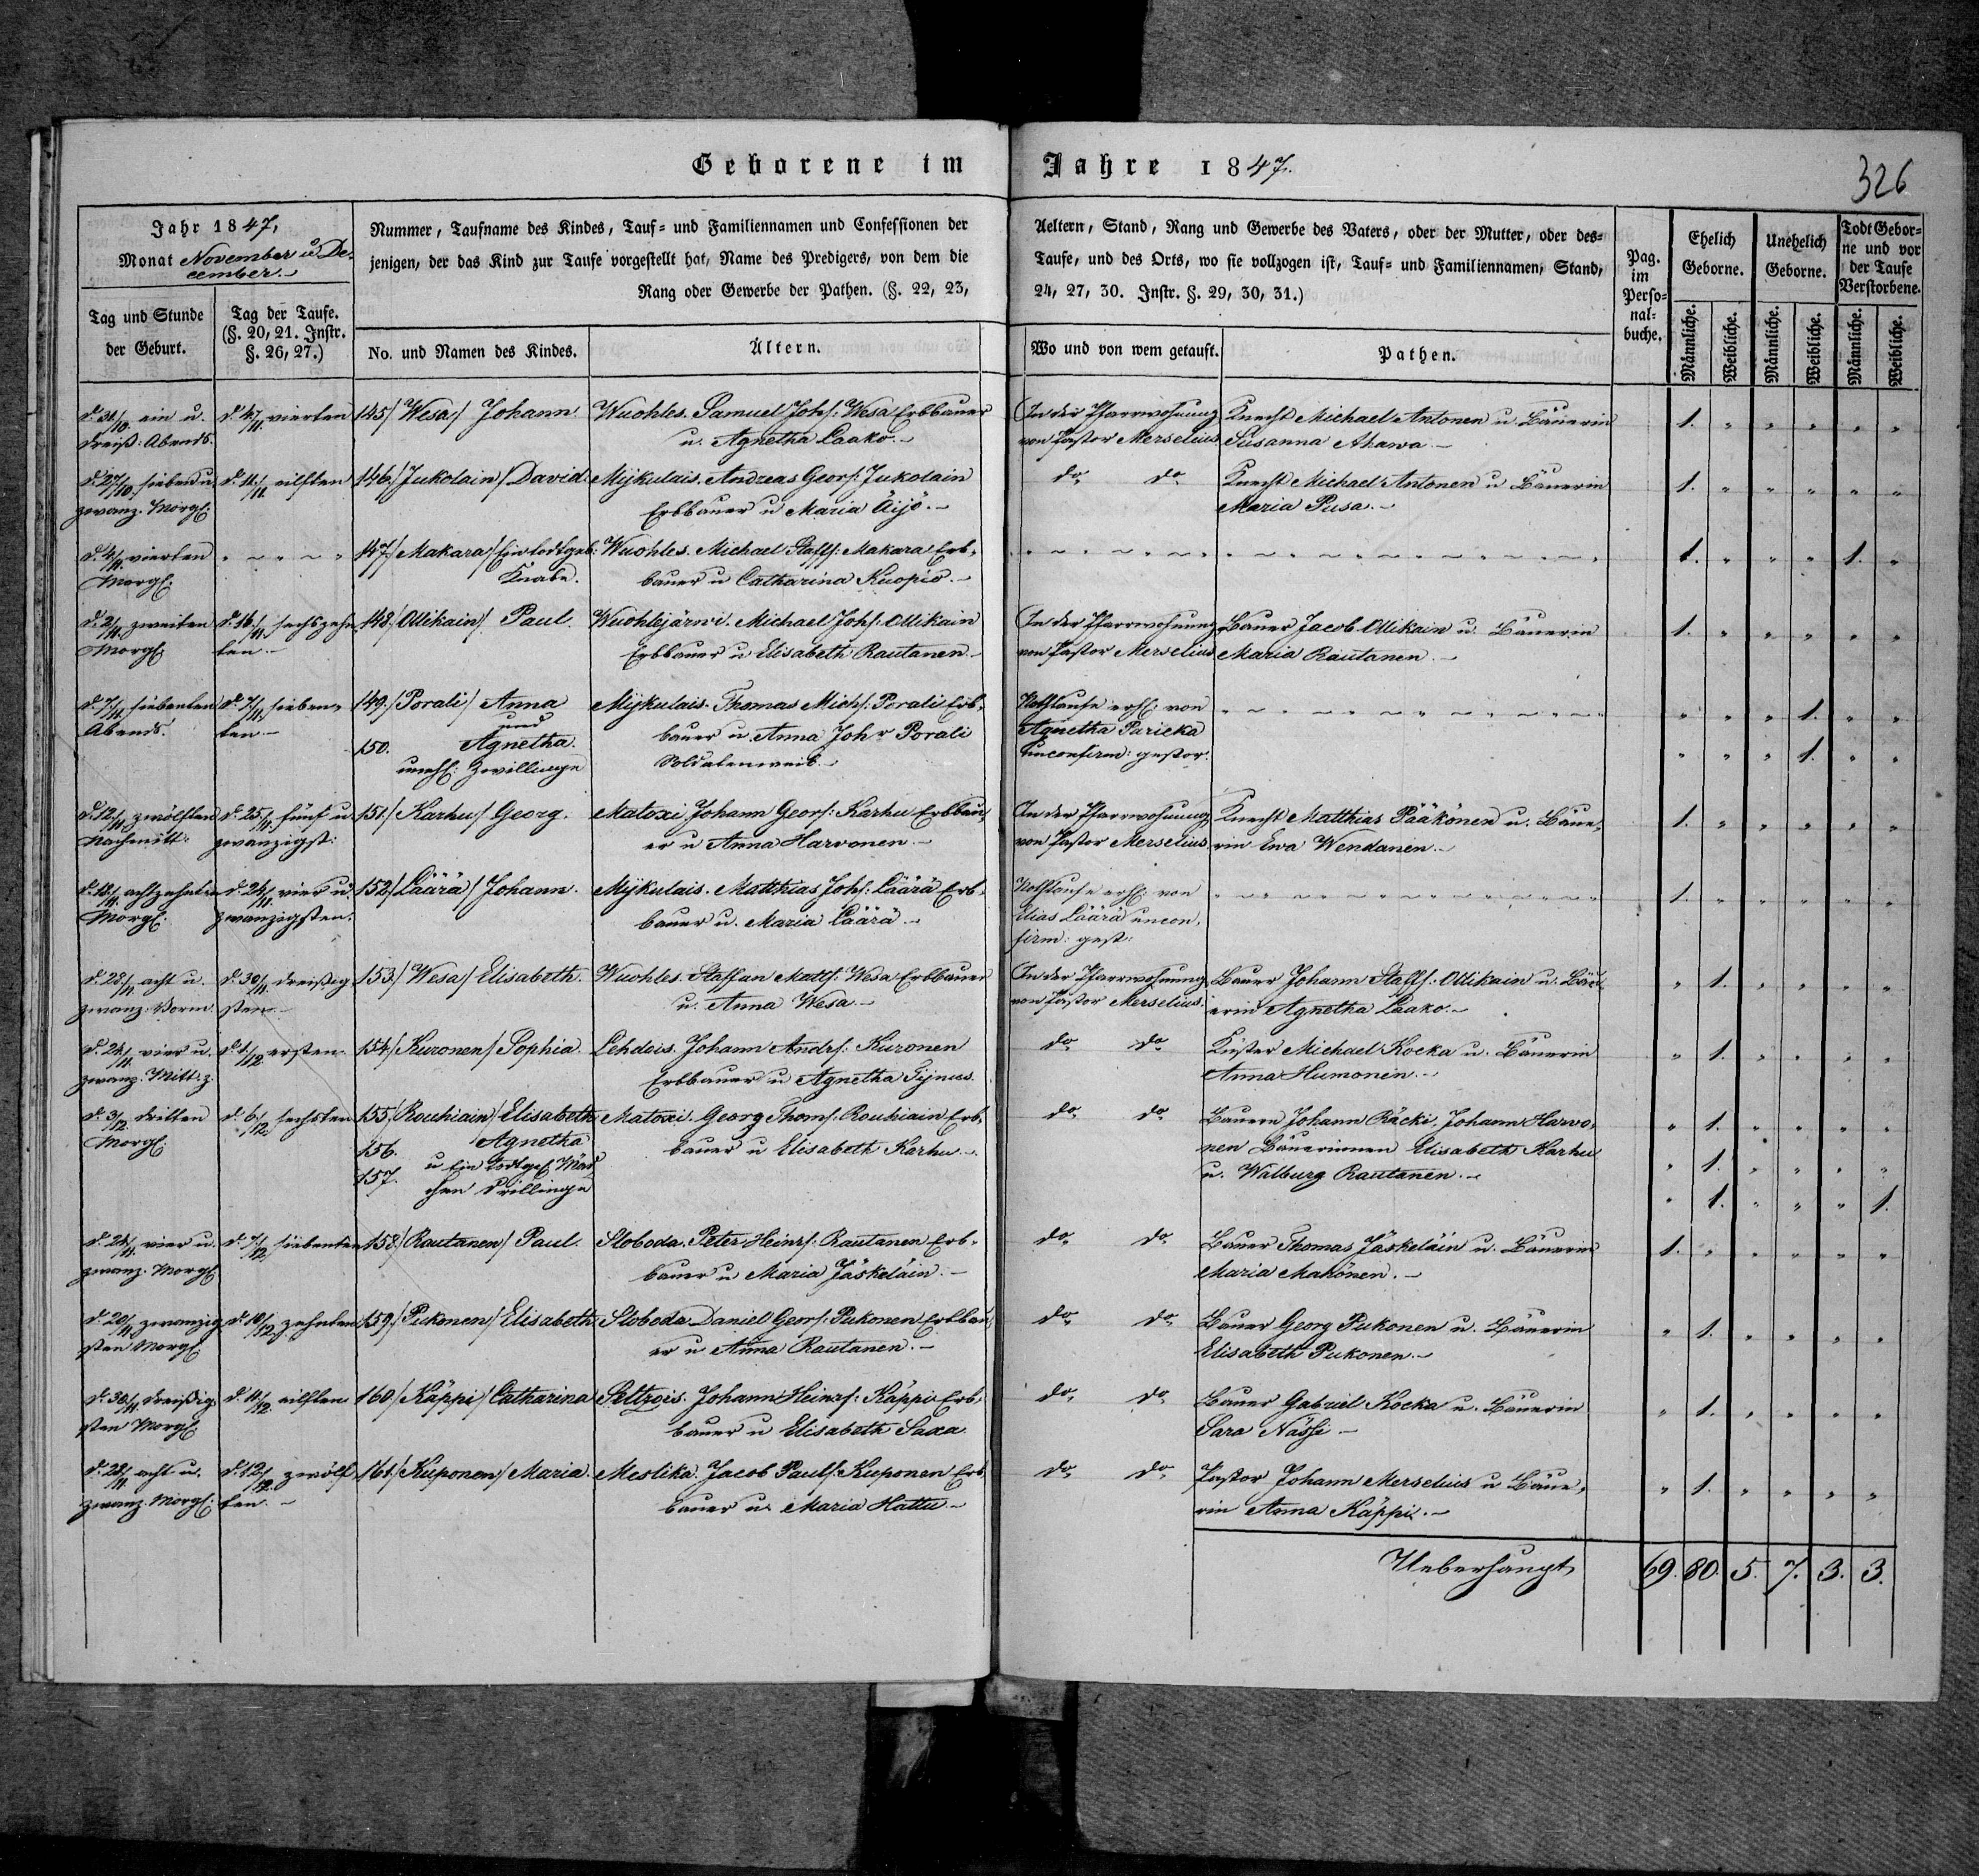 Geborene im Jahre 1847.
326
Jahr 1847,
Monat November u. De-
cember.
Tag und Stunde
der Geburt.
Tag der Taufe.
(§. 20, 21. Instr.
§. 26, 27.)
Nummer, Taufname des Kindes, Tauf- und Familiennamen und Confessionen der Aeltern, Stand, Rang und Gewerbe des Vaters, oder der Mutter, oder des-
jenigen, der das Kind zur Taufe vorgestellt hat, Name des Predigers, von dem die Taufe, und des Orts, wo sie vollzogen ist, Tauf- und Familiennamen, Stand,
Rang oder Gewerbe der Pathen. (§. 22, 23, 24, 27, 30. Instr. §. 29, 30, 31.)
No. und Namen des Kindes.
Ältern.
Wo und von wem getauft.
Pathen.
Pag.
im
Perso-
nal-
buche.
Ehelich
Geborne.
Unehelich
Geborne.
Todt Gebor-
ne und vor
der Taufe
Verstorbene.
Männliche. Weibliche. Männliche. Weibliche. Männliche. Weibliche.
d. 31/10. ein u. d. 4/11. vierten 145./ Wesa/ Johann Wuohles. Samuel Johs: Wesa Erbbauer In der Pfarrwohnung Knecht Michael Antonen u Bäuerin 1. " " " " "
dreiß: Abends. u. Agnetha Laako. von Pastor Merselius Susanna Ahawa
d. 27/10. sieben u. d. 11/11. eilften 146./ Jukolain/ David. Mijkulais. Andreas Geors: Jukolain do do Knecht Michael Antonen u Bäuerin 1. " " " " "
zwanz. Morgs: Erbbauer u Maria Äijö. Maria Pusa.
d. 4/11. vierten " " 147/ Makara/ Ein todtgeb: Wuohles. Michael Staffs: Makara Erb- " " 1. " " " 1. "
Morgs: Knabe. bauer u Catharina Kuopio.
d. 2/11. zweiten d. 16/11. sechszehn- 148./ Ollikain/ Paul. Wuohlejärwi. Michael Johs: Ollikain In der Pfarrwohnung Bauer Jacob Ollikain u. Bäuerin 1. " " " " "
Morgs: ten Erbbauer u Elisabeth Rautanen von Pastor Merselius Maria Rautanen
d. 7/11. siebenten d. 7/11. sieben- 149./ Porali/ Anna Mijkulais. Thomas Michs: Porali Erb- Nothtaufe erh: von " " " " 1. " "
Abends. ten und bauer u. Anna Johr Porali Agnetha Paricka
150. Agnetha. Soldatenweib. unconfirm: gestor. " " " 1. " "
unehl: Zwillinge
d. 12/11. zwölften d. 25/11. fünf u. 151./ Karhu/ Georg. Matoxi Johann Geors: Karhu Erbbau- In der Pfarrwohnung Knecht Matthias Pääkönen u. Bäue- 1. " " " " "
Nachmitt: zwanzigst: er u Anna Harvonen von Pastor Merselius. rin Ewa Wendanen.
d. 18/11. achtzehnten d. 24/11. vier u. 152./ Läärä/ Johann. Mijkulais. Matthias Johs: Läärä Erb- Nothtaufe erh: von " " 1. " " " " "
Morgs: zwanzigsten. bauer u. Maria Läärä. Elias Läärä uncon-
firm: gest:
d. 28/11. acht u. d. 30/11. dreißig- 153./ Wesa/ Elisabeth. Wuohles. Staffan Matts: Wesa Erbbauer In der Pfarrwohnung Bauer Johann Staffs: Ollikain u. Bäu- " 1. " " " "
zwanz. Vorm. sten u. Anna Wesa von Pastor Merselius. erin Agnetha Laako.
d. 24/11. vier u. d. 1/12. ersten. 154/ Kuronen/ Sophia. Lehdois. Johann Andrs: Kuronen do do Küster Michael Kocka u. Bäuerin " 1. " " " "
zwanz. Mitt: z. Erbbauer u Agnetha Tijnus. Anna Humonen.
d. 3/12. dritten d. 6/12. sechsten 155./ Rouhiain/ Elisabeth Matoxi. Georg Thoms: Rouhiain Erb- do do Bauern Johann Räcki, Johann Harvo- " 1. " " " "
Morgs: 156. Agnetha bauer u Elisabeth Karhu. nen Bäuerinnen Elisabeth Karhu " 1. " " " "
157. u Ein todtgeb: Mäd- u. Walburg Rautanen. " 1. " " " 1.
chen Drillinge
d. 24/11. vier u. d. 7/12. siebenten 158./ Rautanen/ Paul. Sloboda. Peter Heinrs: Rautanen Erb- do do Bauer Thomas Jäskeläin u. Bäuerin 1. " " " " "
zwanz. Morgs: bauer u Maria Jäskeläin. Maria Makönen.
d. 20/11. zwanzig- d. 10/12. zehnten 159./ Pukonen/ Elisabeth Sloboda Daniel Geors: Pukonen Erbbau- do do Bauer Georg Pukonen u. Bäuerin " 1. " " " "
sten Morgs: er u Anna Rautanen. Elisabeth Pukonen.
d. 30/11. dreißig- d. 11/12. eilften 160/ Käppi/ Catharina Peltzois. Johann Heinrs: Käppi Erb- do do Bauer Gabriel Kocka u. Bäuerin " 1. " " " "
sten Morgs: bauer u Elisabeth Saxa. Sara Nässi
d. 28/11. acht u. d. 12/12. zwölf- 161./ Kuponen/ Maria. Meslika. Jacob Pauls: Kuponen Erb- do do Pastor Johann Merselius u Bäue- " 1. " " " "
zwanz. Morgs: ten. bauer u. Maria Hattu rin Anna Käppi.
Ueberhaupt 69. 80. 5. 7. 3. 3.